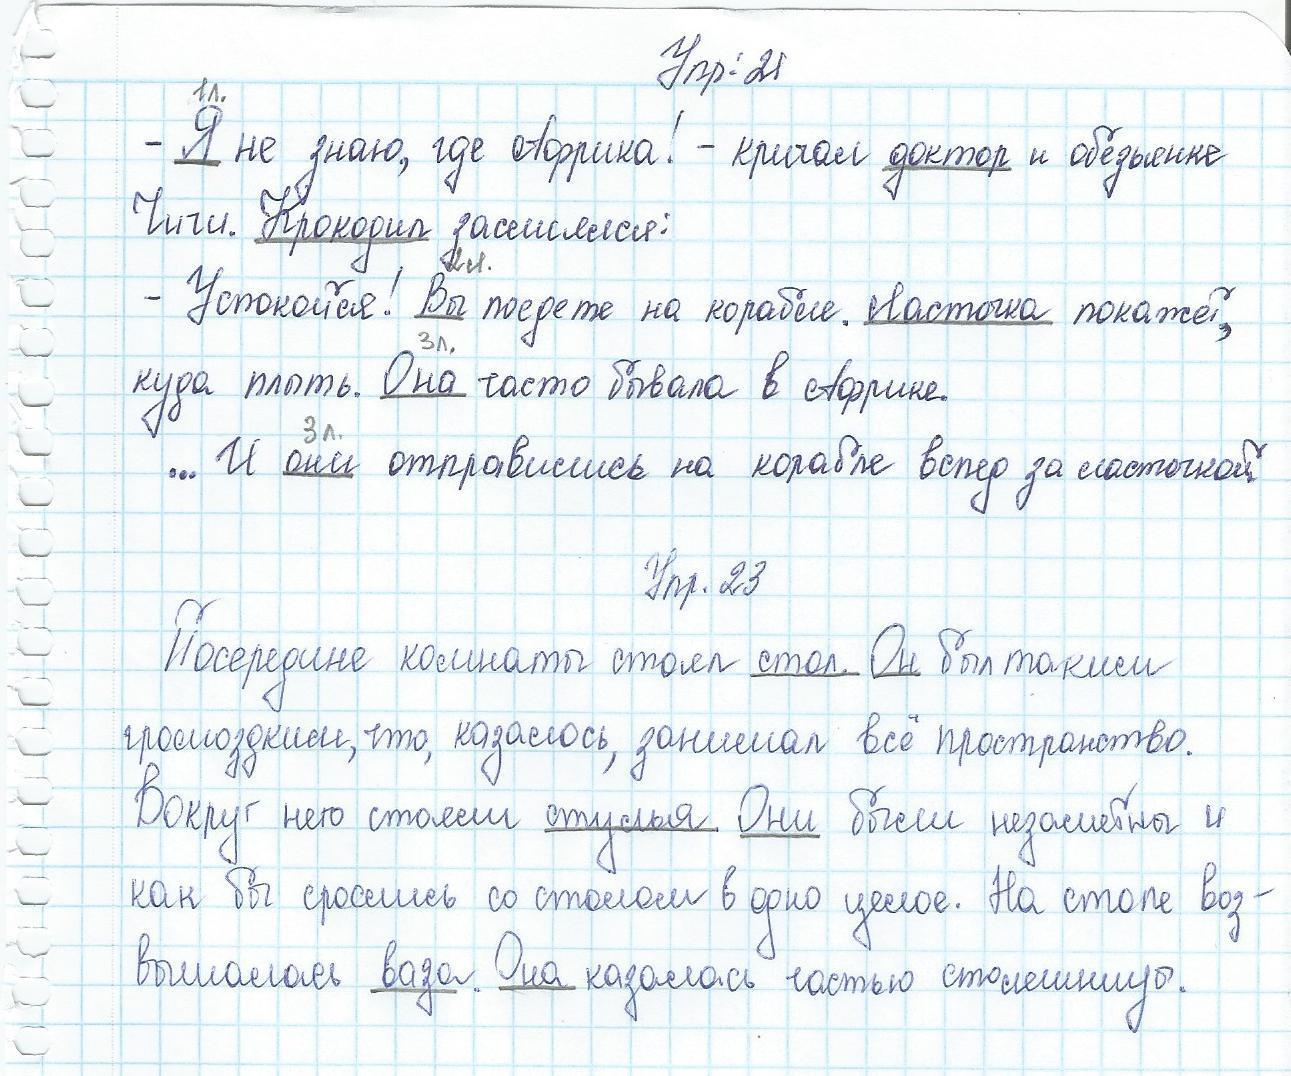 Упр. 21
1л.
- Я не знаю, где Африка! - кричал доктор и обезьянке
Чичи. Крокодил засмеялся:
2л.
- Успокойся! Вы поедете на корабле. Ласточка покажет,
3л.
куда плыть. Она часто бывала в Африке.
3л.
... И они отправились на корабле вслед за ласточкой.
Упр. 23
Посередине комнаты стоял стол. Он был таким
громоздким, что, казалось, занимал всё пространство.
Вокруг него стояли стулья. Они были незаметны и
как бы срослись со столом в одно целое. На столе воз-
вышалась ваза. Она казалась частью столешницы.